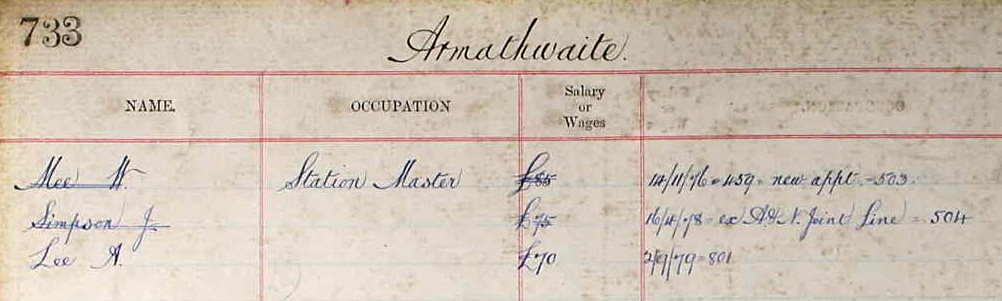 733
Armathwaite.
NAME. OCCUPATION Salary or Wages
Mee W. Station Master £85 14/11/76 = 459 = new appt. = 503.
Simpson J. £75 16/4/78 = ex A.& N. Joint Line = 504
Lee A. £70 2/9/79 = 801